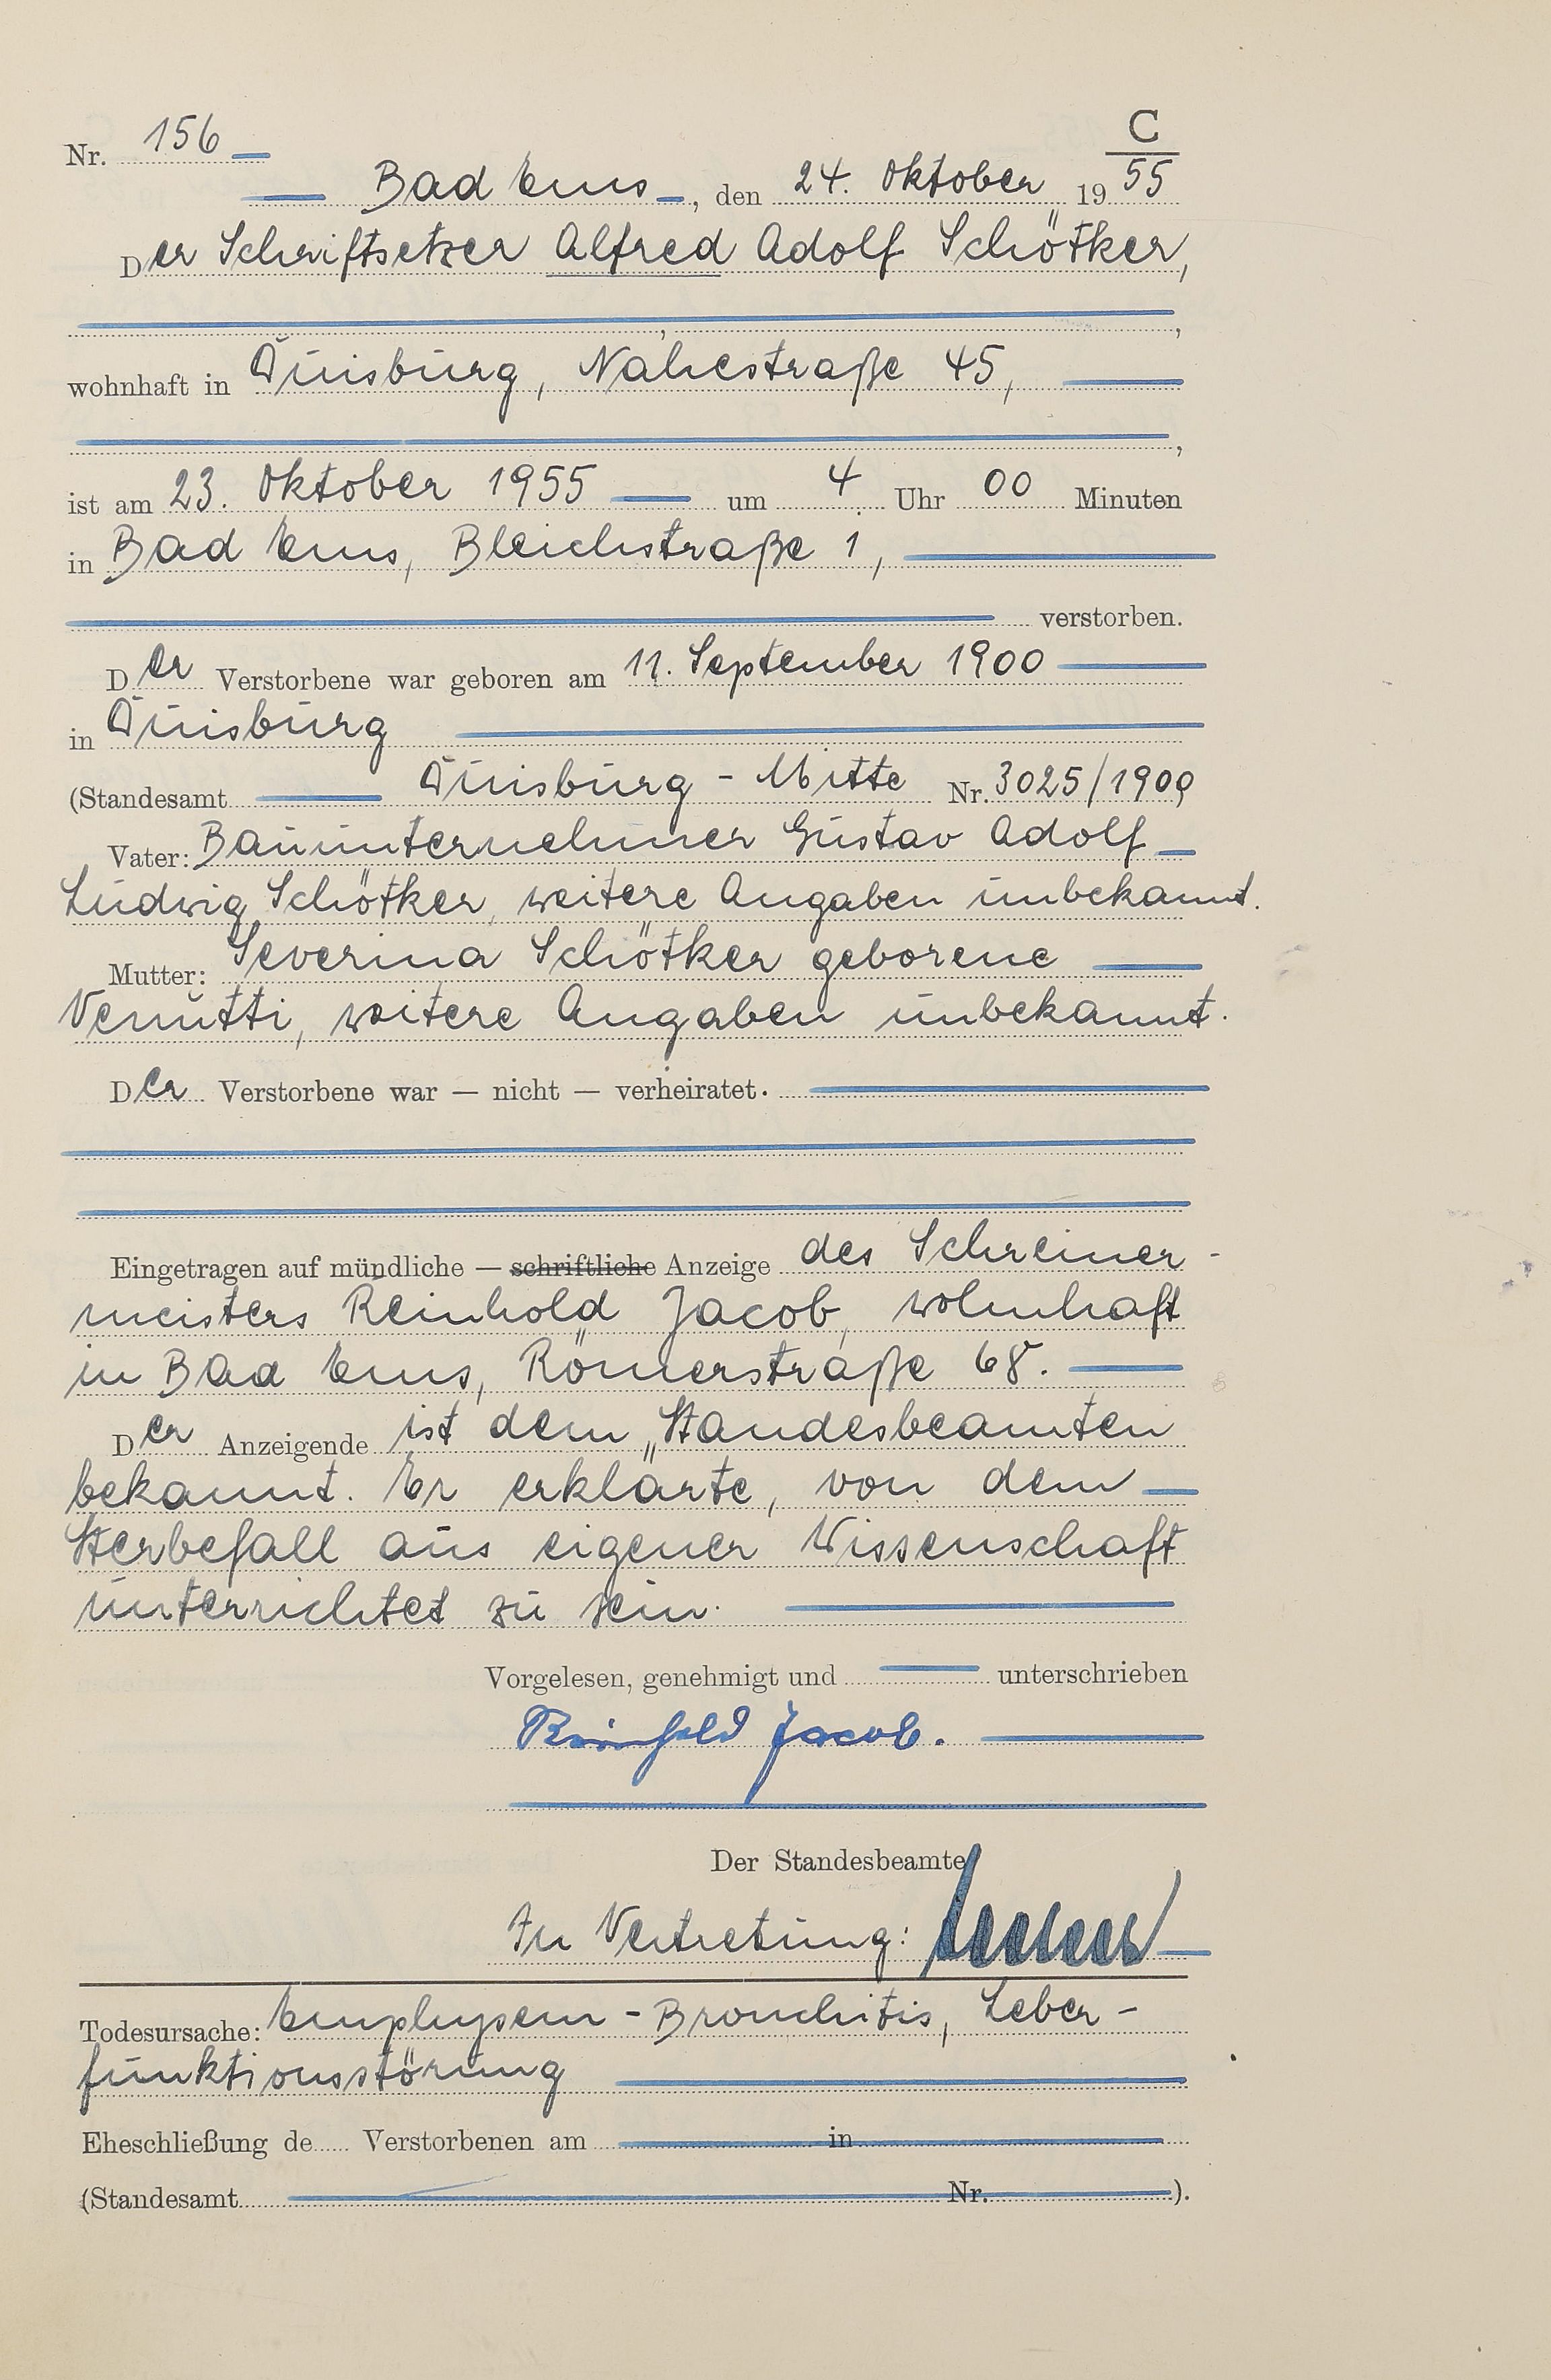 C
Nr. 156
Bad Ems, den 24. Oktober 1955
Der Schriftsetzer Alfred Adolf Schötker,
, ,
wohnhaft in Duisburg, Nahestraße 45,
,
ist am 23. Oktober 1955 um 4 Uhr 00 Minuten
in Bad Ems, Bleichstraße 1,
verstorben.
Der Verstorbene war geboren am 11. September 1900
in Duisburg
(Standesamt Duisburg - Mitte Nr. 3025/1900)
Vater: Bauunternehmer Gustav Adolf
Ludwig Schötker, weitere Angaben unbekannt.
Mutter: Severina Schötker geborene
Venutti, weitere Angaben unbekannt.
Der Verstorbene war — nicht — verheiratet.
Eingetragen auf mündliche — schriftliche Anzeige des Schreiner-
meisters Reinhold Jacob, wohnhaft
in Bad Ems, Römerstraße 68.
Der Anzeigende ist dem Standesbeamten
bekannt. Er erklärte, von dem
Sterbefall aus eigener Wissenschaft
unterrichtet zu sein.
Vorgelesen, genehmigt und unterschrieben
Reinhold Jacob.
Der Standesbeamte
In Vertretung:
Todesursache: Emphysem - Bronchitis, Leber-
funktionsstörung
Eheschließung de Verstorbenen am in
(Standesamt Nr. ).